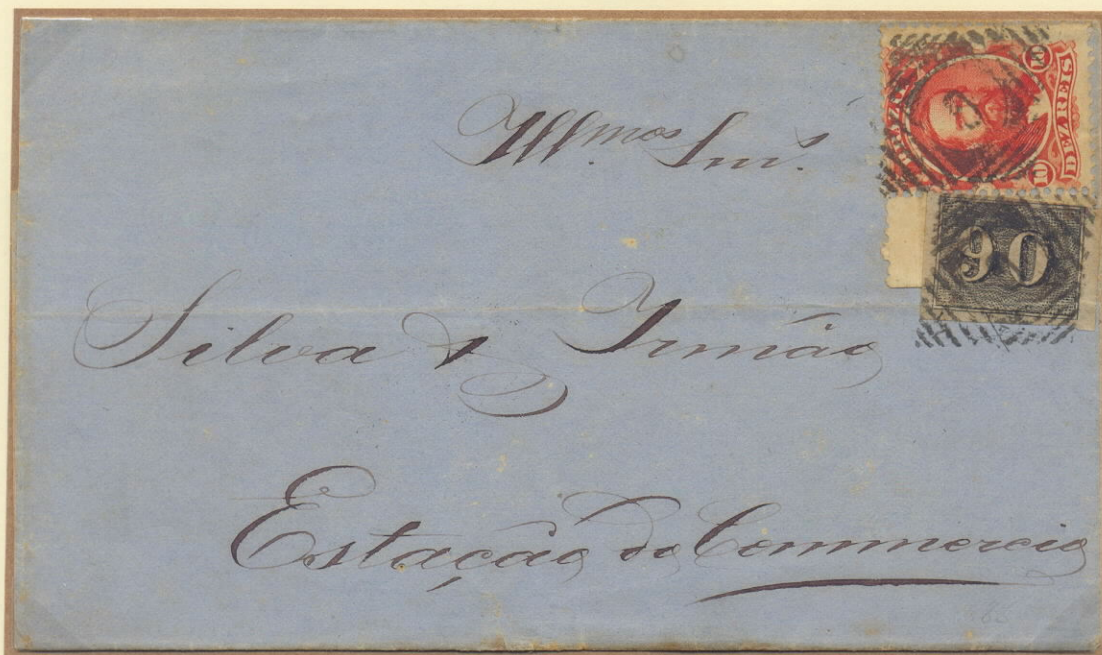 Ill.mos Snrs.
Silva & Irmão
Estação do Commercio
10
DEZ REIS
10
90